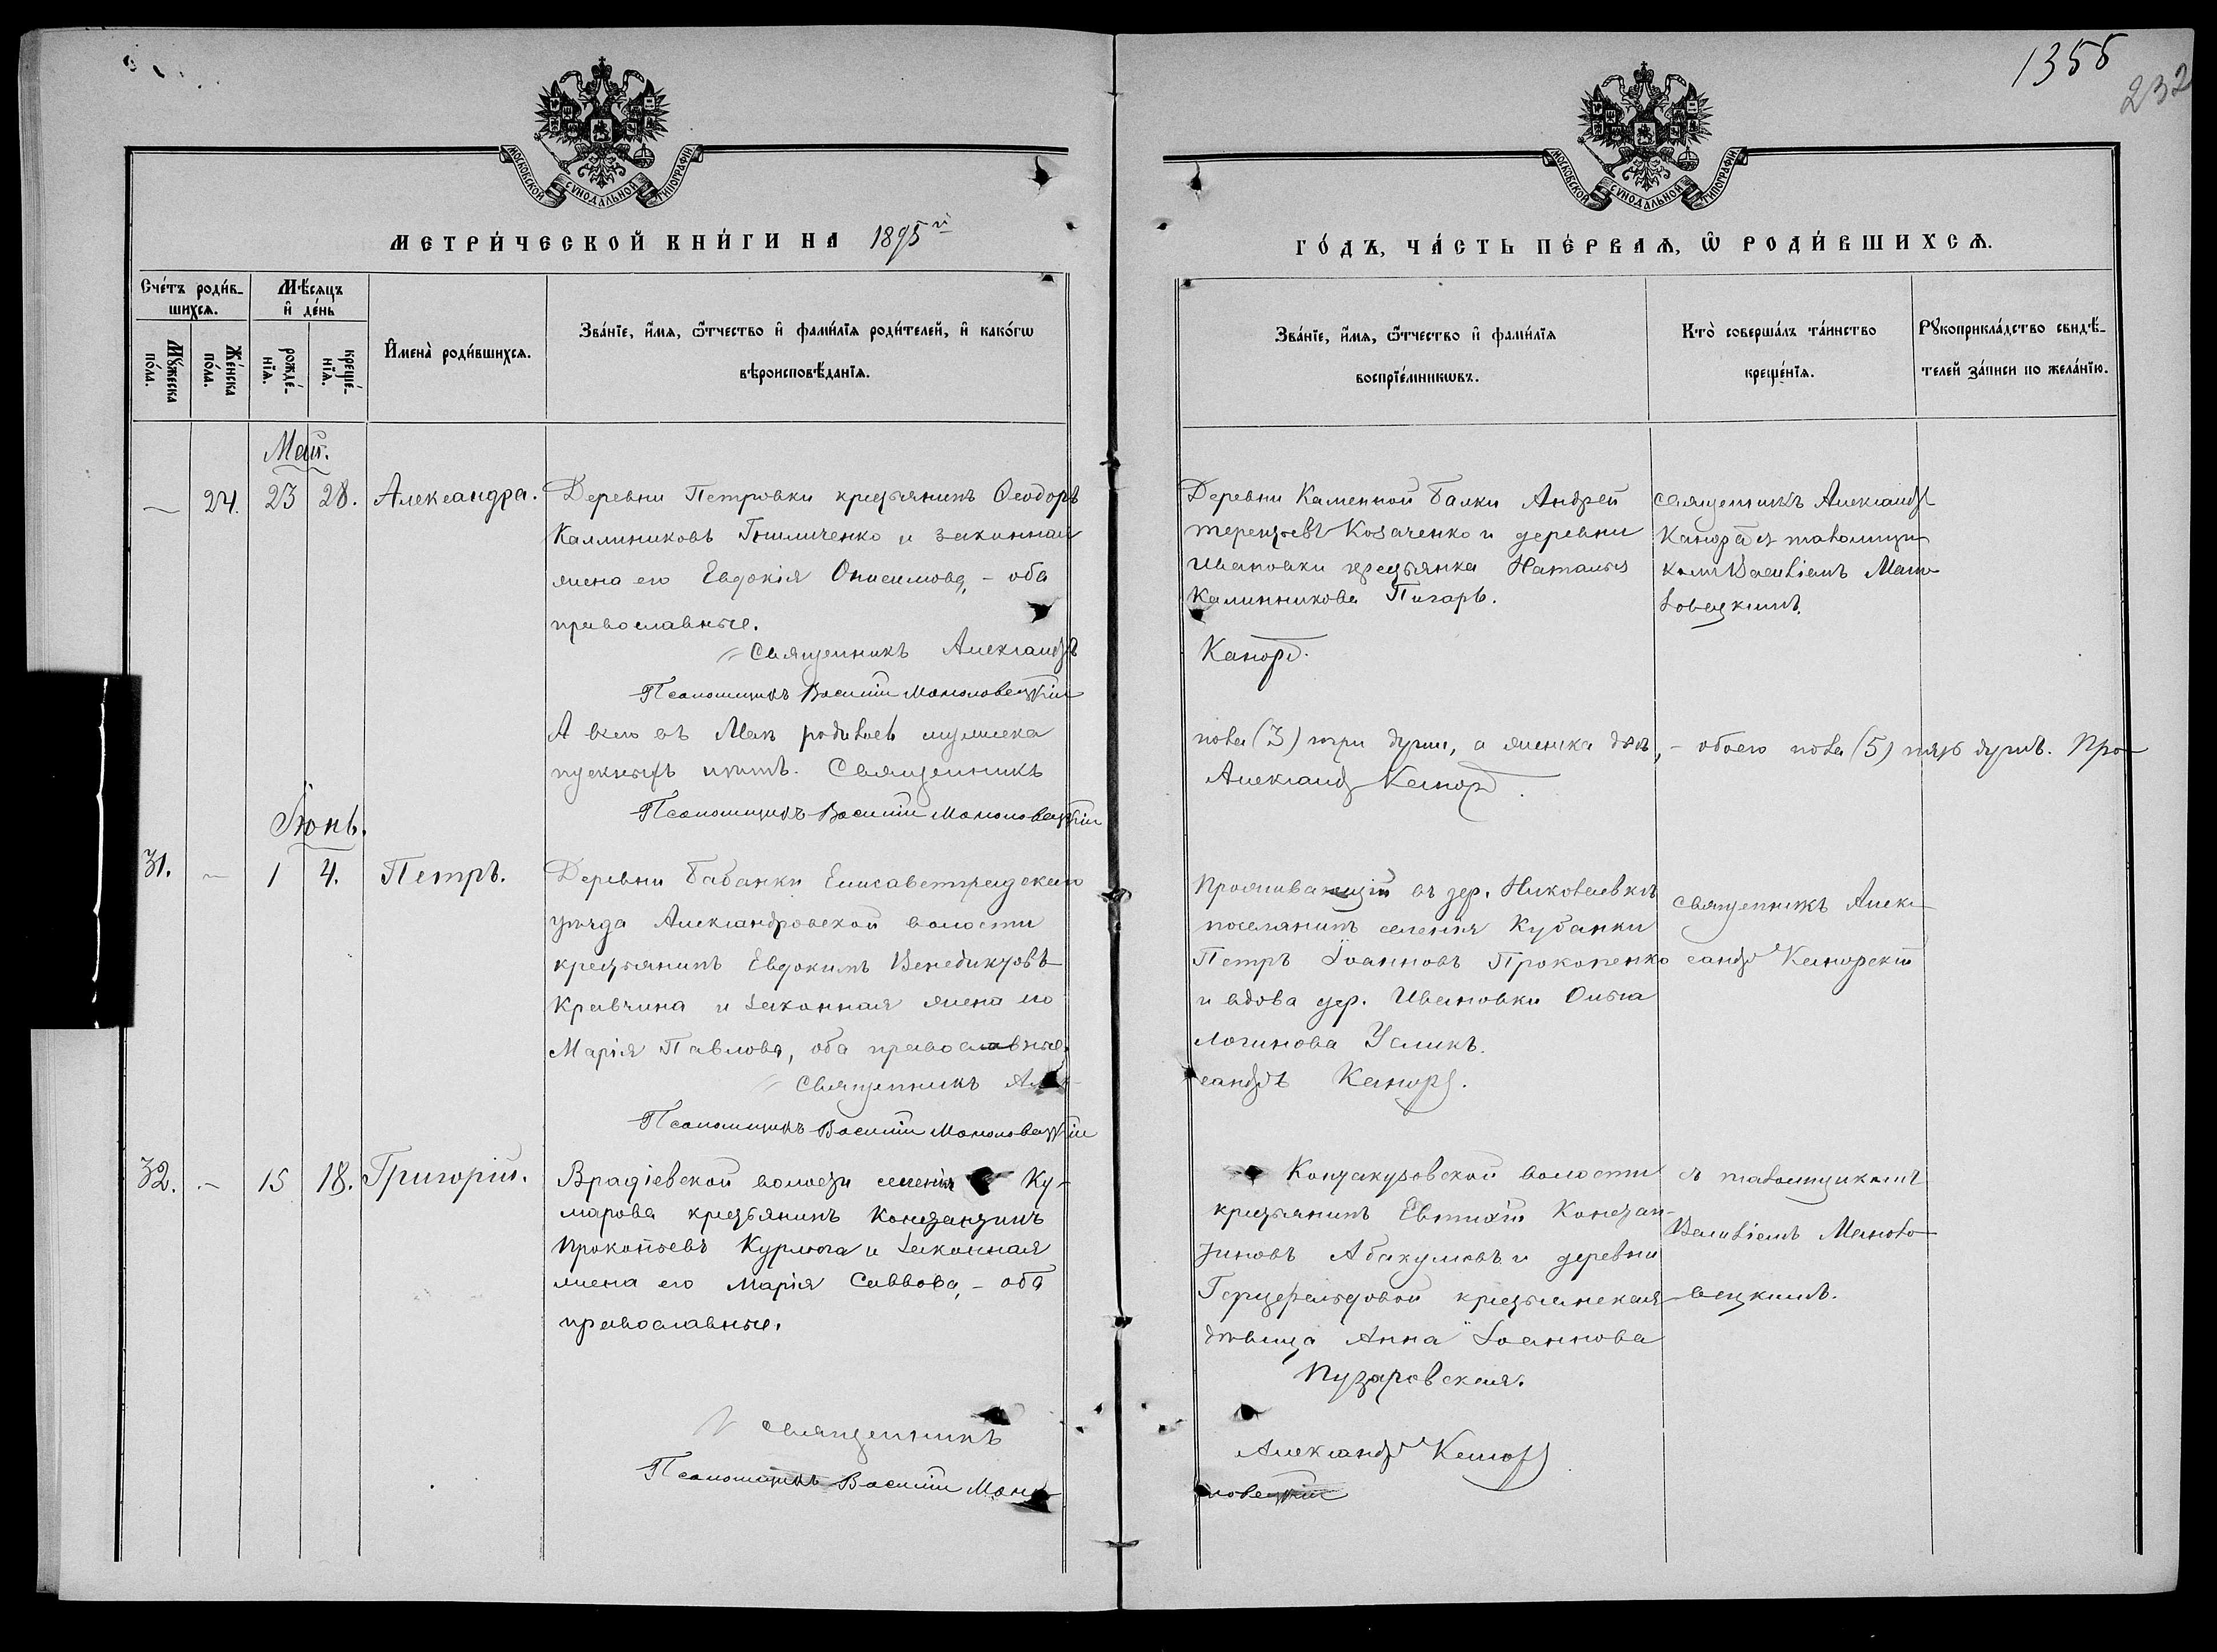 1355
232
МОСКОВСКОЙ СѴНОДАЛЬНОЙ ТИПОГРАФІИ
МОСКОВСКОЙ СѴНОДАЛЬНОЙ ТИПОГРАФІИ
МЕТРИ́ЧЕСКОЙ КНИ́ГИ НА 1895й
ГО́ДЪ, ЧА́СТЬ ПЕ́РВАѦ, Ѿ РОДИ́ВШИХСѦ.
Сче́тъ роди́в-
шихсѧ.
Мѣ́сѧцъ
и҆ де́нь
Мꙋ́жеска
по́ла.
Же́нска
по́ла.
рожде́-
нїѧ.
креще́-
нїѧ.
И҆мена̀ роди́вшихсѧ.
Зва́нїе, и҆́мѧ, ѻ҆́тчество и҆ фами́лїѧ роди́телей, и҆ како́гѡ
вѣроисповѣ́данїѧ.
Зва́нїе, и҆́мѧ, ѻ҆́тчество и҆ фами́лїѧ
воспрїе́мникѡвъ.
Кто̀ соверша́лъ та́инство
креще́нїѧ.
Рꙋкоприкла́дство свидѣ́-
телей за́писи по жела́нїю.
Май.
— 24. 23 28. Александра.
Деревни Петровки крестьянинъ Ѳеодоръ
Каллиниковъ и законная
жена его Евдокія Онисимова, – оба
православные.
Священникъ Александръ
Псаломщикъ Василій Маноловецкій
Деревни Каменной Балки Андрей
Терентьевъ Козаченко и деревни
Ивановки крестьянка Наталья
Калинникова Пигарь.
Канорс.
Священникъ Александръ
съ псаломщи
комъ Василіемъ Мано
ловецкимъ.
А всего въ Маѣ родилось мужеска
Священникъ
Псаломщикъ Василій Маноловецкій
пола (3) три души, а женска двѣ, – обоего пола (5) пять душъ. Про-
Александръ
Іюнь.
31. — 1 4. Петръ.
Деревни Бабанки Елисаветградскаго
уѣзда Александровской волости
крестьянинъ Евдокимъ Венедиктовъ
Кравчина и законная жена его
Марія Павлова, оба православные.
Священникъ Алек-
Псаломщикъ Василій Маноловецкій
Проживающій въ дер. Николаевкѣ
поселянинъ селенія Кубанки
Петръ Іоанновъ Прокопенко
и вдова дер. Ивановки Ольга
Логинова Усликъ.
сандръ
Священникъ Алек-
сандръ Канорскій
32. — 15 18. Григорій.
Врадіевской волости селенія Ку-
марова крестьянинъ Константинъ
Прокопьевъ Курлюга и законная
жена его Марія Саввова, – оба
православные.
Священникъ
Псаломщикъ Василій Мано
Кондакуровской волости
крестьянинъ Евтихій Констан-
тиновъ Абакумовъ и деревни
Герцфельдовой крестьянская
дѣвица Анна Іоаннова
Пузаровская.
Александръ
ловецкій
съ псаломщикомъ
Василіемъ Маноло
вецкимъ.